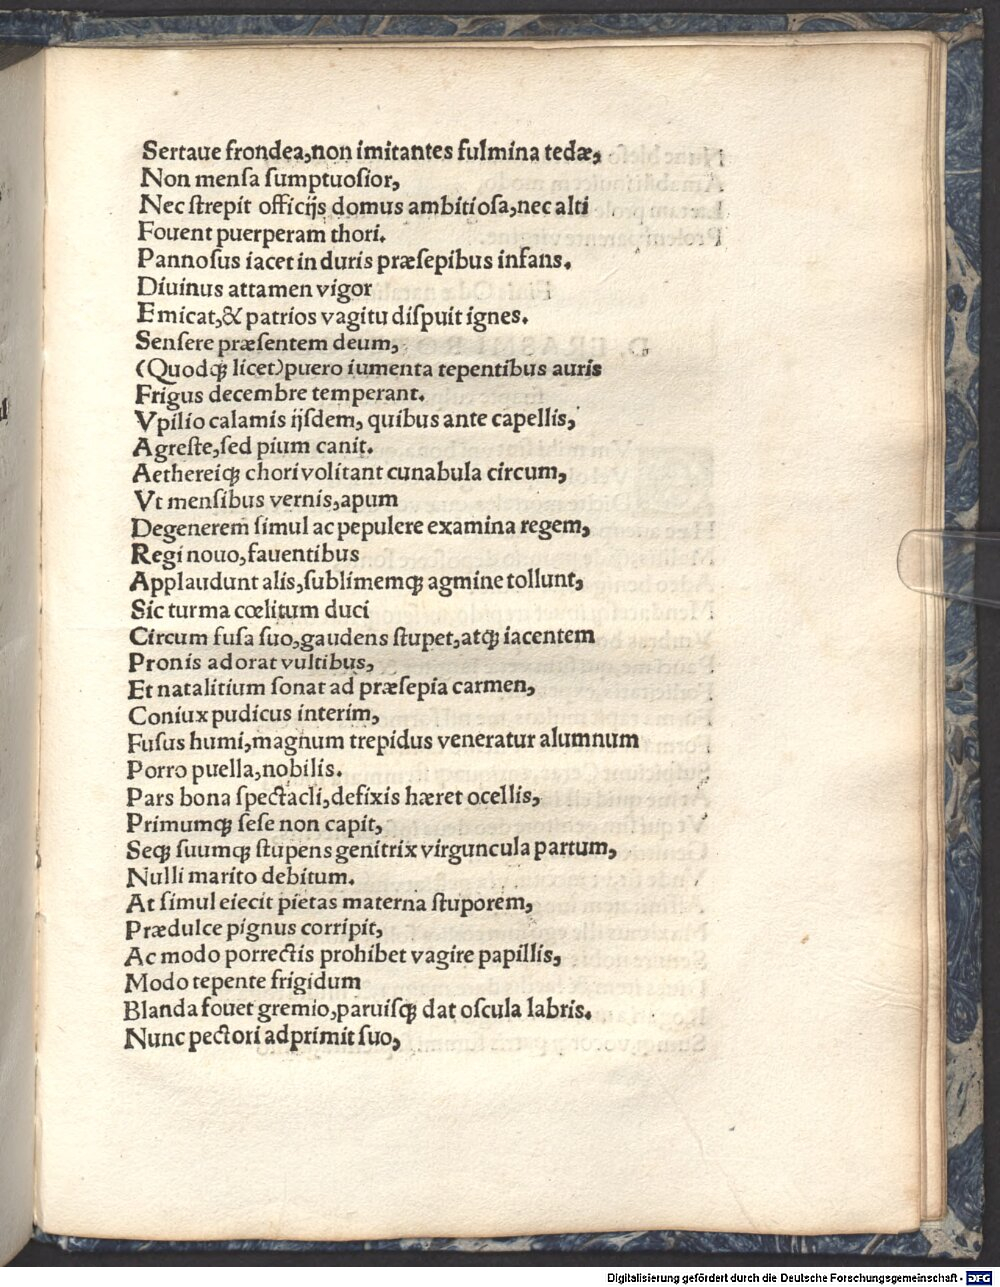 Sertaue frondea,non imitantes fulmina tedæ,
Non menſa ſumptuoſior,
Nec ſtrepit officijs domus ambitioſa,nec alti
Fouent puerperam thori.
Pannoſus iacet in duris præſepibus infans.
Diuinus attamen vigor
Emicat,& patrios vagitu diſpuit ignes.
Senſere præſentem deum,
(Quodqꝫ licet)puero iumenta tepentibus auris
Frigus decembre temperant.
Vpilio calamis ijſdem, quibus ante capellis,
Agreſte,ſed pium canit.
Aethereiqꝫ chori volitant cunabula circum,
Vt menſibus vernis,apum
Degenerem ſimul ac pepulere examina regem,
Regi nouo,fauentibus
Applaudunt alis,ſublimemqꝫ agmine tollunt,
Sic turma cœlitum duci
Circum fuſa ſuo,gaudens ſtupet,atqꝫ iacentem
Pronis adorat vultibus,
Et natalitium ſonat ad præſepia carmen,
Coniux pudicus interim,
Fuſus humi,magnum trepidus veneratur alumnum
Porro puella,nobilis.
Pars bona ſpectacli,defixis hæret ocellis,
Primumqꝫ ſeſe non capit,
Seqꝫ ſuumqꝫ ſtupens genitrix virguncula partum,
Nulli marito debitum.
At ſimul eiecit pietas materna ſtuporem,
Prædulce pignus corripit,
Ac modo porrectis prohibet vagire papillis,
Modo tepente frigidum
Blanda fouet gremio,paruiſqꝫ dat oſcula labris.
Nunc pectori adprimit ſuo,
Digitalisierung gefördert durch die Deutsche Forschungsgemeinschaft - DFG